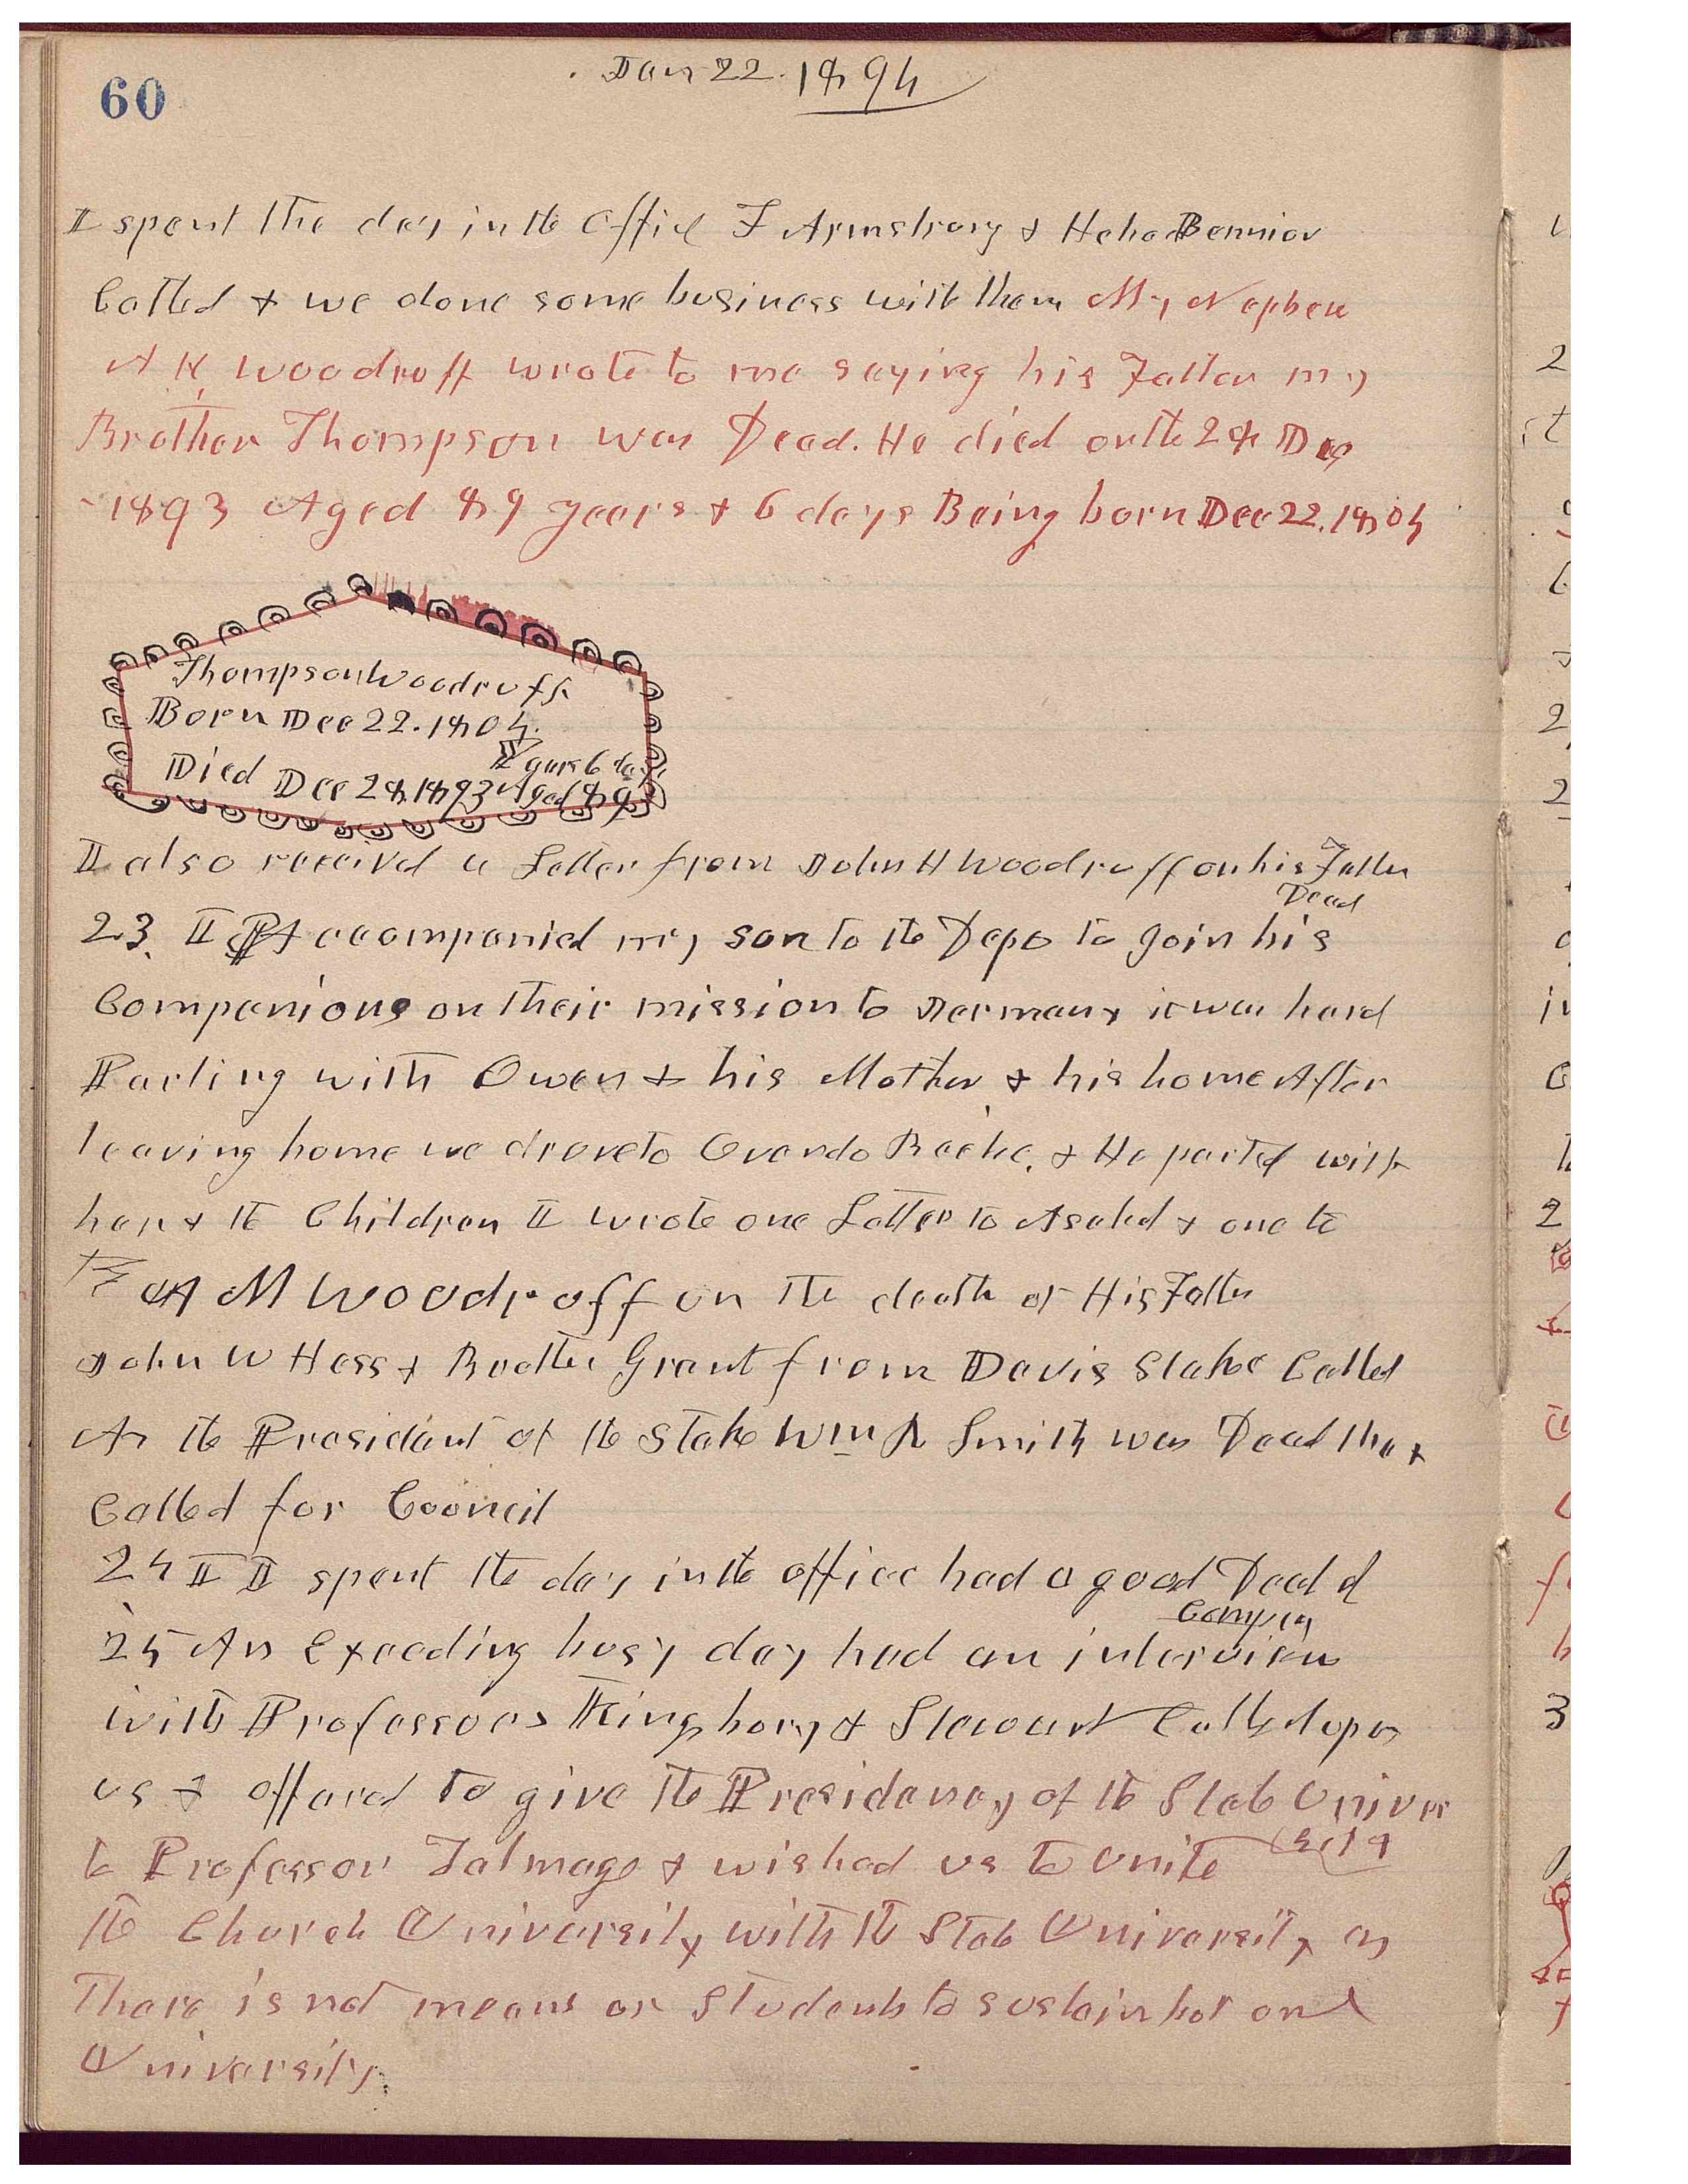 60
Jan 22. 1894
I spent the day in the office F Armstrong & Heber Bennion
Called & we done some business with them My Nephew
A H Woodruff wrote to me saying his Father my
Brother Thompson was Dead. He died on the 28 Dec
1893 Aged 89 years & 6 days Being born Dec 22. 1804
Thompson Woodruff
Born Dec 22. 1804.
Died Dec 28. 1893 Aged 89
Years 6 days
I also received a Letter from John H Woodruff on his Father
Dead
23. I Accompanied my son to the Depo to Join his
Companions on their mission to Germany it was hard
Parting with Owen & his Mother & his home After
leaving home we drove to Ovando & He parted with
her & the Children I wrote one Letter to Asahel & one to
A M Woodruff on the death of His Father
John W Hess & Brother Grant from Davis Stake Called
As the President of the Stake Wm R Smith was Dead they
Called for Council
24 I I spent the day in the office had a good Deal of
Company
25 An Exceeding busy day had an interview
with Professors Kingsbury & Stewart Called upon
us & offered to give the Presidency of the State Univer
sity
to Professor Talmage & wished us to Unite
the Church University with the State University as
There is not means or Students to sustain but one
University.